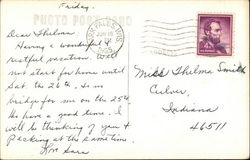 Friday.
PHOTO POST CARD
Dear Thelma,
Having a wonderful &
restful vacation. Will
not start for home until
Sat. the 26th, so no
bridge for me on the 25th.
Do have a good time. I
will be thinking of you &
packing at the same time.
Sara
JUN 18
Miss Thelma Smith
Culver,
Indiana
46511